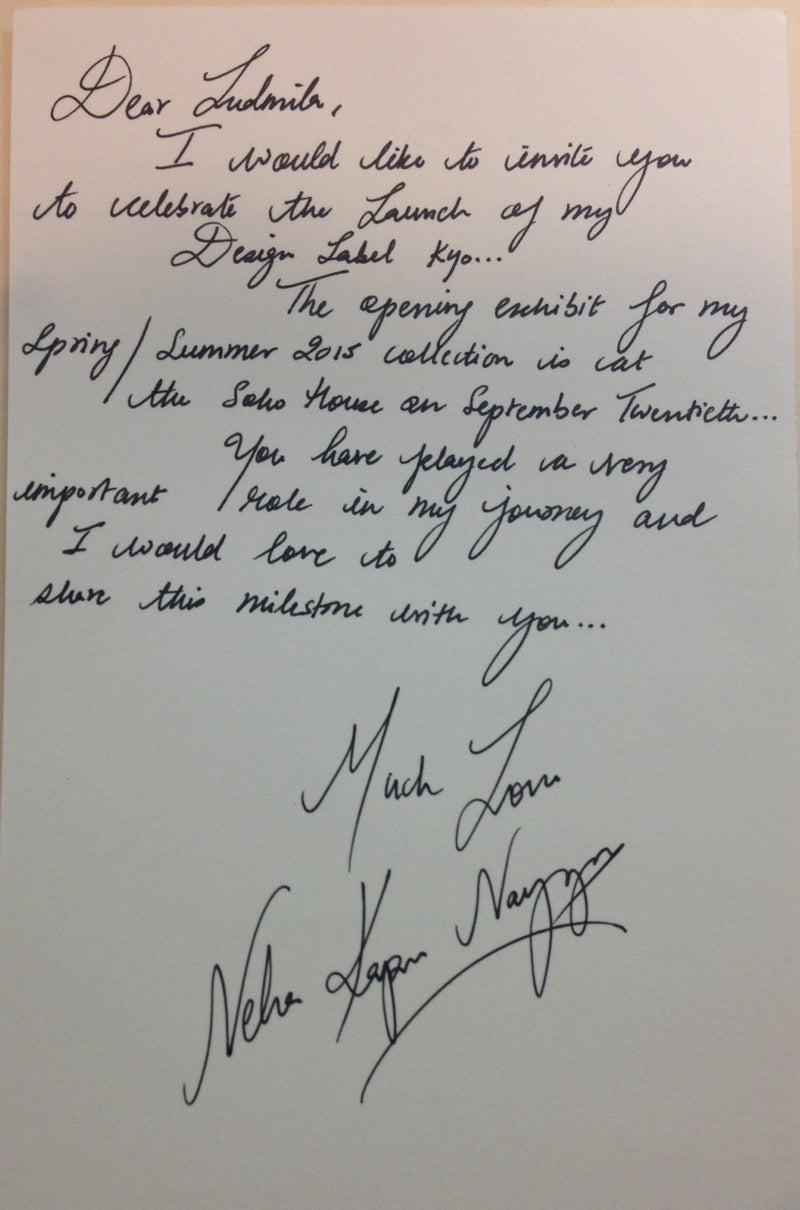 Dear Ludmila,
I would like to invite you
to celebrate the Launch of my
Design Label Kyo...
The opening exhibit for my
Spring/Summer 2015 collection is at
the Soho House on September Twentieth...
You have played a very
important role in my journey and
I would love to
share this milestone with you...
Much Love
Neha Kapur